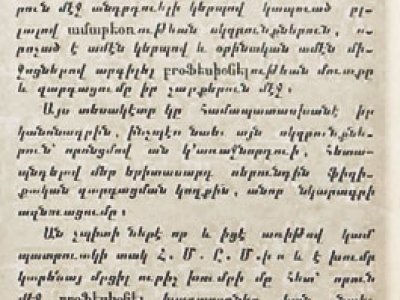 րուն մէջ անդրդուելի կերպով կապուած ըլ-
լալով ամարէօռութեան սկզբունքներուն, ո-
րոշած է ամէն կերպով և օրինական ամէն մի-
ջոցներով արգիլել բրօֆէսիօնէլութեան մուտքը
և զարգացումը իր շարքերուն մէջ։
Այս տեսակէտը կը համապատասխանէ իր
կանոնագրին, ինչպէս նաև այն սկզբունքնե-
րուն՝ որոնցմով ան կ՚առաջնորդուի, հետա-
պնդելով մեր երիտասարդ սերունդին ֆիզի-
քական զարգացման կողքին, անոր նկարագրի
ազնուացումը։
Ան չպիտի ներէ որ և իցէ առիթով կամ
պատրուակի տակ Հ. Մ. Ը. Մ.ի ո և է խումբ
կարենայ մրցիլ ուրիշ խումբի մը հետ՝ որուն
մէջ բրօֆէսիօնէլ